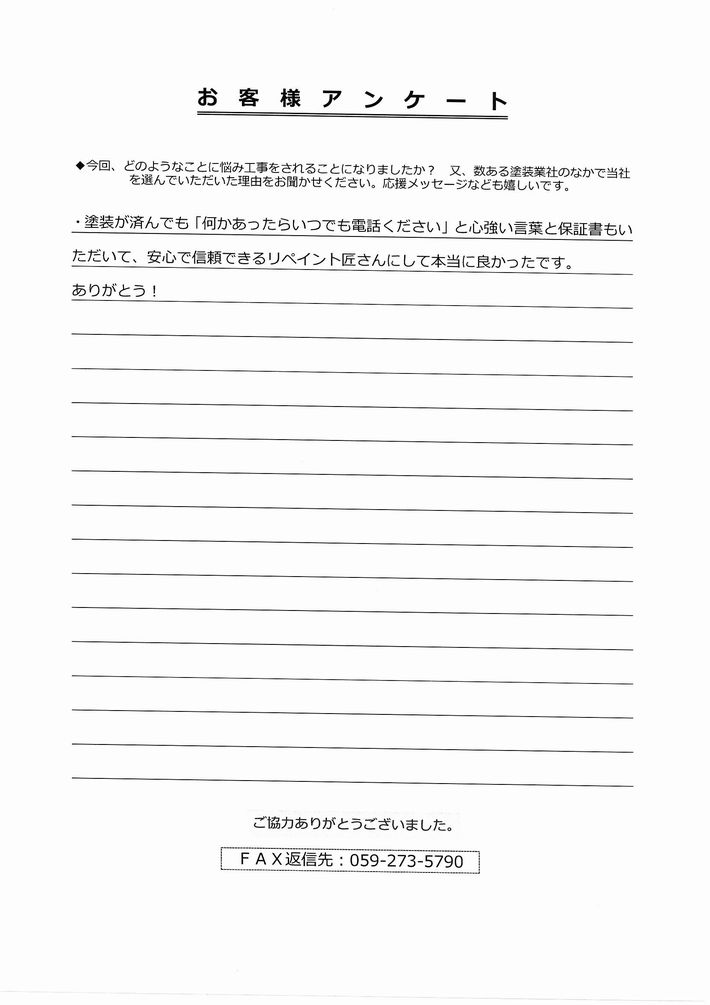 お客様アンケート
◆今回、どのようなことに悩み工事をされることになりましたか？　又、数ある塗装業社のなかで当社
を選んでいただいた理由をお聞かせください。応援メッセージなども嬉しいです。
・塗装が済んでも「何かあったらいつでも電話ください」と心強い言葉と保証書もい
ただいて、安心で信頼できるリペイント匠さんにして本当に良かったです。
ありがとう！
ご協力ありがとうございました。
ＦＡＸ返信先：059-273-5790